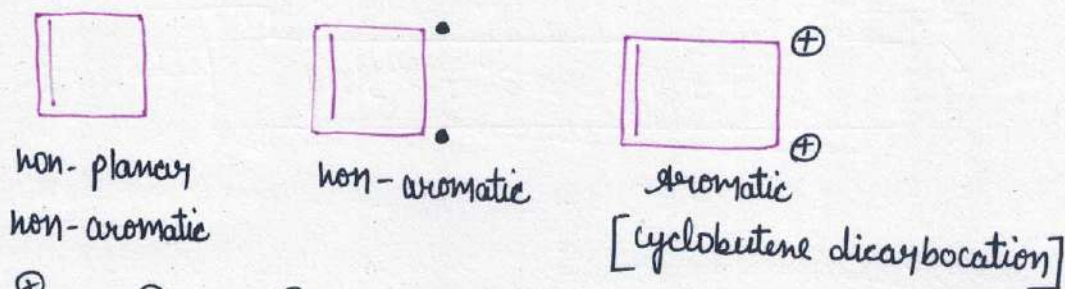 ⊕
⊕
non-planar
non-aromatic
non-aromatic
aromatic
[cyclobutene dicarbocation]
⊕